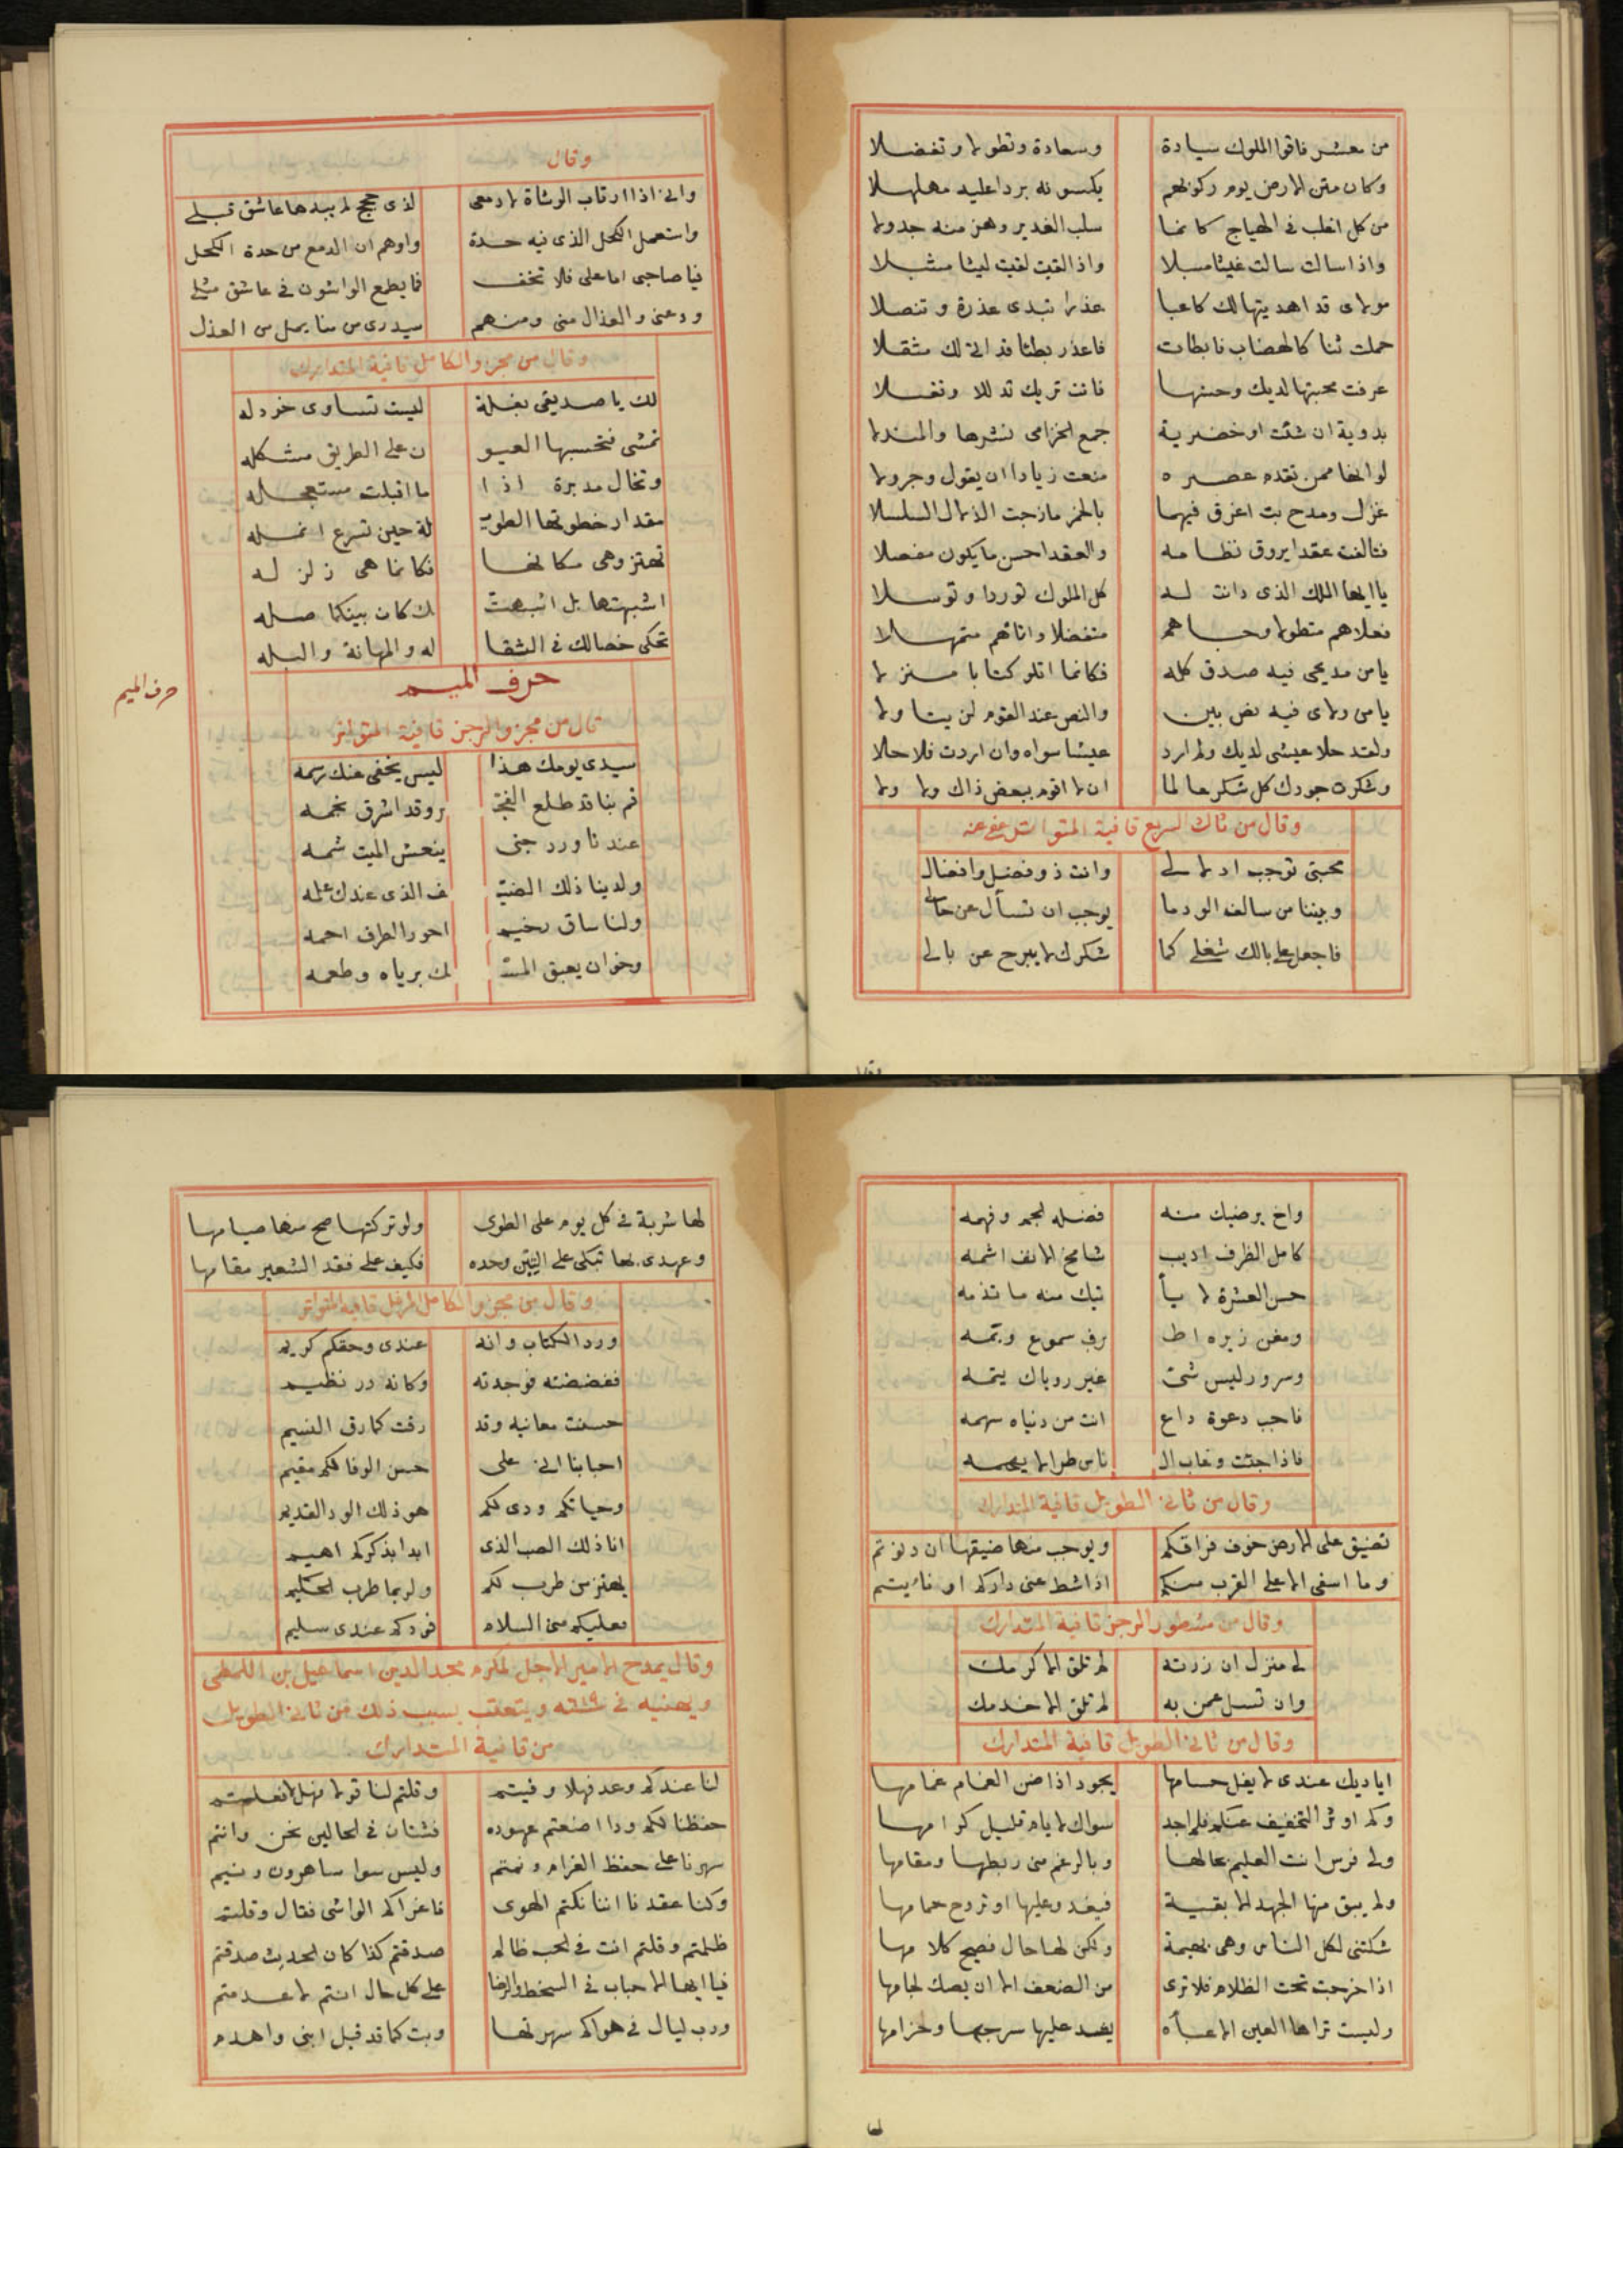 من معشر فاقوا الملوك سيادة وسعادة وتطولا وتفضلا
وكان متن الارض يوم ركوبهم يكسونه بردا عليه مهلهلا
من كل اغلب في الهياج كانما سلب الغدير وهز منه جدولا
واذا سالت سالت غيثا مسبلا واذا لقيت لقيت ليثا مشبلا
مولاى قد اهديتها لك كاعبا عذرا تبدى عذرة وتنصلا
حملت ثنا كالهضاب فابطات فاعذر بطئا قد اتى لك مثقلا
عرفت محبتها لديك وحسنها فاتت تريك تدللا وتغسلا
بدوية ان شئت او خضرية جمع الخزامى نشرها والمندلا
لو انها ممن تقدم عصره منعت زيادا ان يقول وجرولا
غزل ومدح بت اغرق فيهما بالخمر مازجت الزلال السلسلا
فتالفت عقدا يروق نظامه والعقد احسن ما يكون مفصلا
يا ايها الملك الذى دانت له كل الملوك توردا وتوسلا
فعلاهم متطولا وحباهم متفضلا واتاهم متمهلا
يا من مديحى فيه صدق كله فكانما اتلو كتابا منزلا
يا من ولاى فيه نص بين والنص عند القوم لن يتاولا
ولقد حلا عيشى لديك ولم ارد عيشا سواه وان اردت فلا حلا
وشكرت جودك كل شكر عالما ان لا اقوم ببعض ذاك ولا ولا
وقال من ثالث السريع قافية المتواتر عفى عنه
محبتى توجب ادلالى وانت ذو فضل وافضال
وبيننا من سالف الود ما يوجب ان تسأل عن حالى
فاجعل على بالك شغلى كما شكرك لا يبرح عن بالى
وقال
وقال
وانى اذا ارتاب الوشاة لادمعى لذى حجج لم يبدها عاشق قبلى
واستعمل الكحل الذى فيه حدة واوهم ان الدمع من حدة الكحل
فيا صاحبى اما على فلا تخف فما يطمع الواشون فى عاشق مثلى
ودعنى والعذال منى ومنهم سيدرى من منا يمل من العذل
وقال من مجزو الكامل قافية المتدارك
لك يا صديقى بغلة ليست تساوى خردله
تمشى فتحسبها العيو ن على الطريق مشكله
وتخال مدبرة اذا ما اقبلت مستعجله
مقدار خطوتها الطويـ لة حين تسرع انمله
تهتز وهى مكانها فكانما هى زلزله
اشبهتها بل اشبهت ك كان بينكما صله
تحكى خصالك فى الثقا له والمهانة والبله
حرف الميم
حرف الميم
قال من مجزو الرجز قافية المتواتر
سيدى يومك هذا ليس يخفى عنك رسمه
قم بنا قد طلع الفجـ ر وقد اشرق نجمه
عندنا ورد جنى ينعش الميت شمه
ولدينا ذلك الضيـ ف الذى عندك علمه
ولنا ساق رخيم احور الطرف احمه
وخوان يعبق المسـ ك برياه وطعمه
واخ يرضيك منه فضله الجم وفهمه
كامل الظرف اديب شامخ الانف اشمه
حسن العشرة لا يا تيك منه ما تذمه
ومغن زيره اطـ رف سموع وبمه
وسرور ليس شى غير روياك يتمه
فاجب دعوة داع انت من دنياه سهمه
فاذا جئت وغاب الـ ناس طرا لا يهمه
وقال من ثانى الطويل قافية المتدارك
تضيق على الارض خوف فراقكم ويوجب منها ضيقها ان دنوتم
وما اسفى الا على القرب منكم اذا شط عنى داركم او نايتم
وقال من مشطور الرجز قافية المتدارك
لى منزل ان زرته لم تلق الا كرمك
وان تسل عمن به لم تلق الا خدمك
وقال من ثانى الطويل قافية المتدارك
اياديك عندى لا يغل حسامها يجود اذا ضن الغمام غمامها
وكم اوثر التخفيف عنكم فلم اجد سواك لايام قليل كرامها
ولى فرس انت العليم بحالها وبالرغم منى ربطها ومقامها
ولم يبق منها الجهد الا بقية فيغدو عليها او تروح حمامها
شكتنى لكل الناس وهى بهيمة ولكن لها حال فصيح كلامها
اذا خرجت تحت الظلام فلا ترى من الضعف الا ان يصك لجامها
وليست تراها العين الا عبأه يشد عليها سرجها وحزامها
لها
لها شربة فى كل يوم على الطوى ولو تركتها صح منها صيامها
وعهدى بها تبكى على التبن وحده فكيف على فقد الشعير مقامها
وقال من مجزو الكامل المرفل قافية المتواتر
ورد الكتاب وانه عندى وحقكم كريم
ففضضته فوجدته وكانه در نظيم
حسنت معانيه وقد رقت كما رق النسيم
احبابنا انى على حسن الوفا لكم مقيم
وحياتكم ودى لكم هو ذلك الود القديم
انا ذلك الصب الذى ابدا بذكركم اهيم
يهتز من طرب لكم ولربما طرب الحكيم
فعليكم منى السلام فودكم عندى سليم
وقال يمدح الامير الاجل المكرم مجد الدين اسماعيل بن اللمطى
ويهنيه فى سنة ويتعتب بسبب ذلك من ثانى الطويل
من قافية المتدارك
لنا عندكم وعد فهلا وفيتم وقلتم لنا قولا فهلا فعلتم
حفظنا لكم ودا اضعتم عهوده فشتان فى الحالين نحن وانتم
سهرنا على حفظ الغرام ونمتم وليس سوا ساهرون ونيم
وكنا عقدنا اننا نكتم الهوى فاغراكم الواشى فقال وقلتم
ظلمتم وقلتم انت فى الحب ظالم صدقتم كذا كان الحديث صدقتم
فيا ايها الاحباب فى السخط والرضا على كل حال انتم لا عدمتم
ورب ليال فى هواكم سهرتها وبت كما قد قيل ابنى واهدم